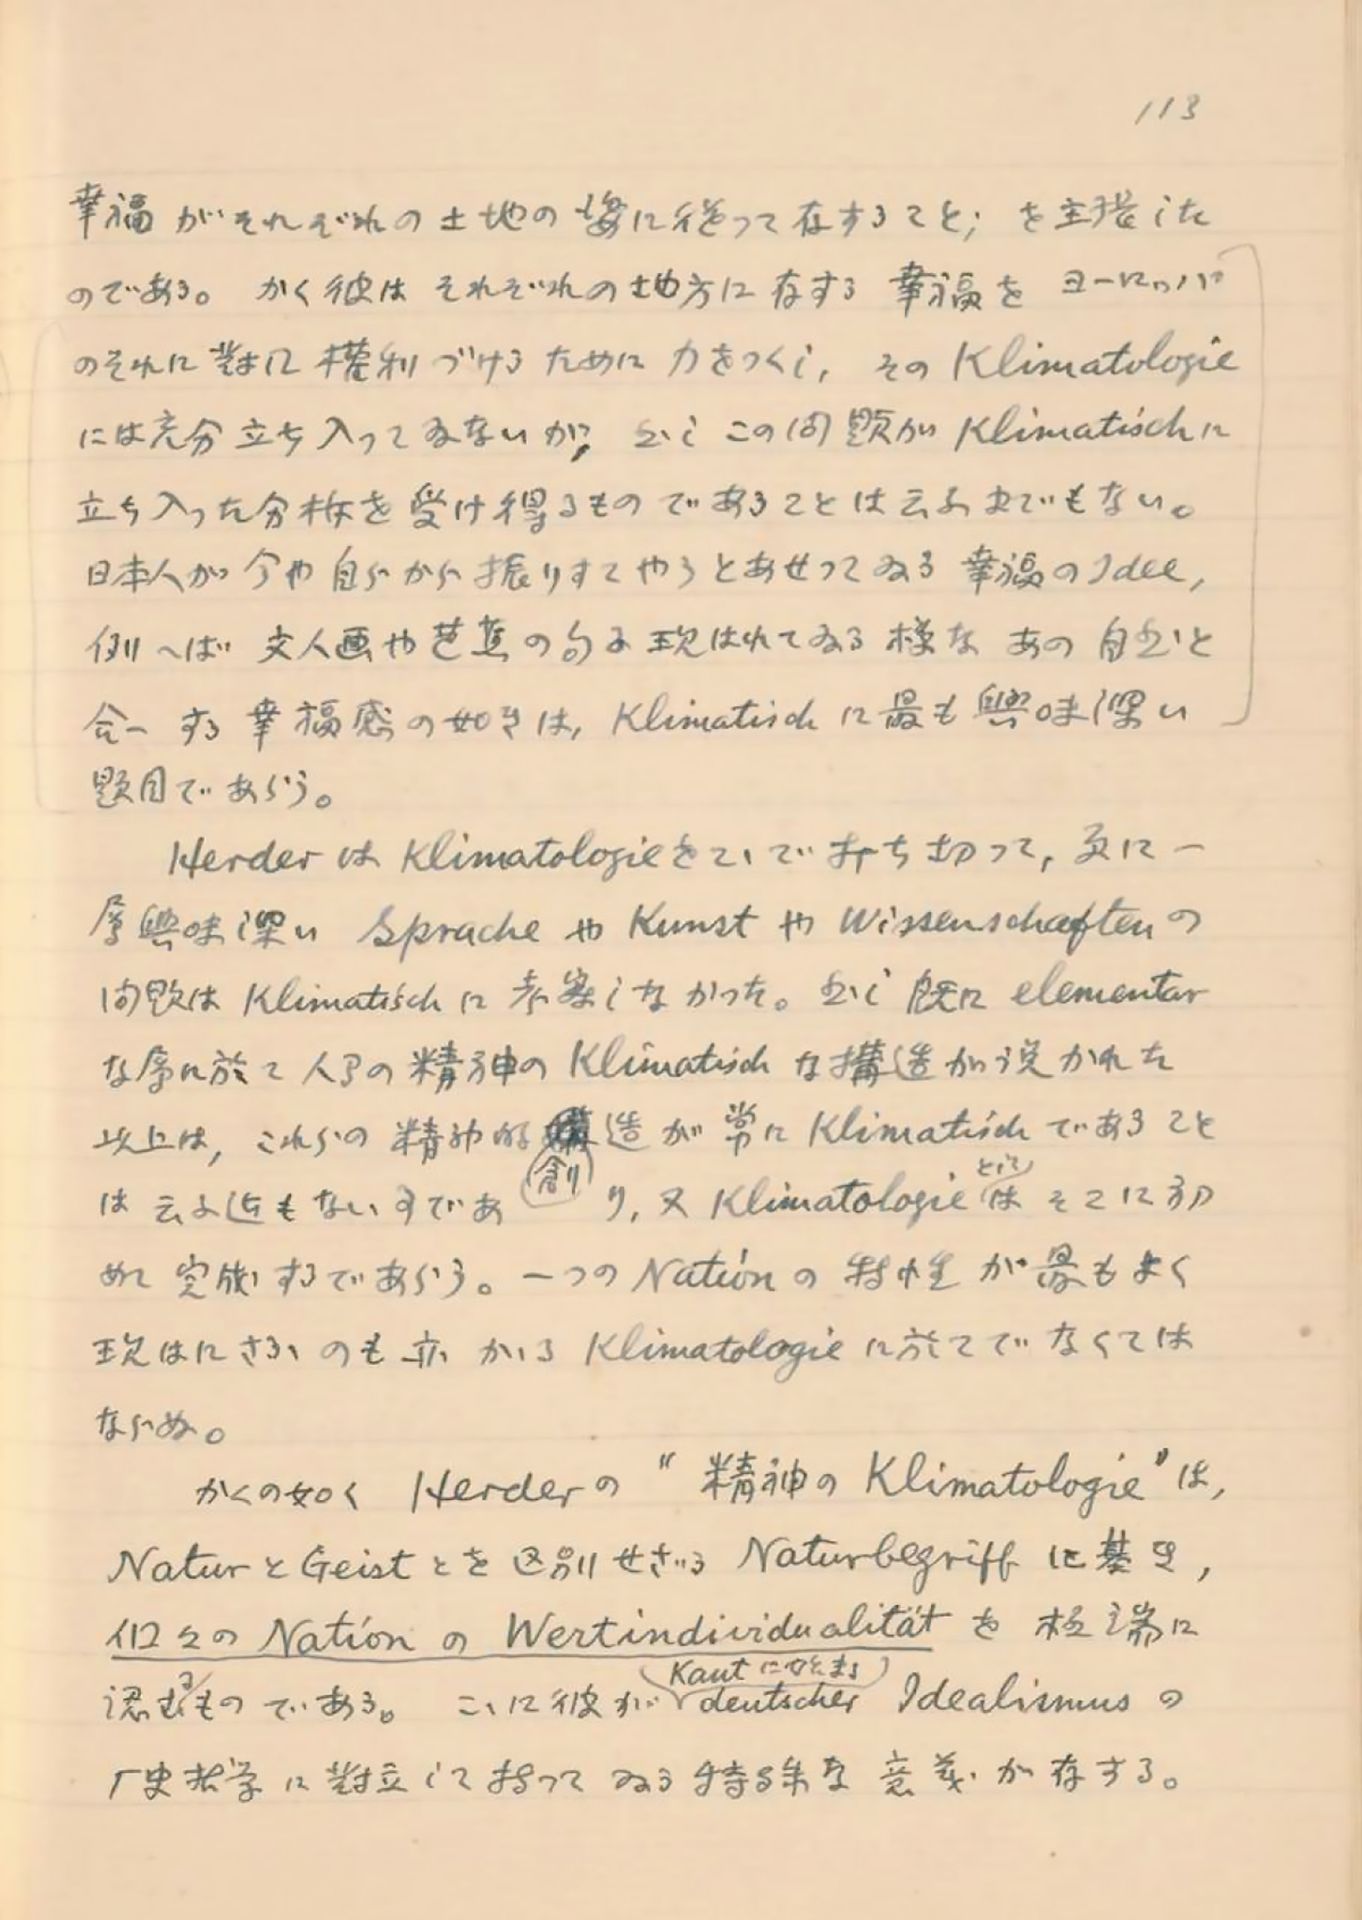 113
幸福がそれぞれの土地の姿に従って存すること; を主張した
のである。かく彼はそれぞれの地方に存する幸福をヨーロッパ
のそれに対して権利づけるために力をつくし, その Klimatologie
には充分立ち入ってゐないが, 然しこの問題が Klimatisch に
立ち入った分析を受け得るものであることは云ふまでもない。
日本人が今や自らから振りすてやうとあせってゐる幸福の Idee,
例へば文人画や芭蕉の句に現はれてゐる様なあの自然と
合一する幸福感の如きは, Klimatisch に最も興味深い
題目であらう。
Herder は Klimatologie をこゝで打ち切って, 更に一
層興味深い Sprache や Kunst や Wissenschaften の
問題は Klimatisch に考察しなかった。然し既に elementar
な層に於て人間の精神の Klimatisch な構造が説かれた
以上は, これらの精神的創造が常に Klimatisch であること
は云ふ迄もないのであり, 又 Klimatologie としてはそこに初
めて完成するであらう。一つの Nation の特性が最もよく
現はにさるゝのも亦かゝる Klimatologie に於てでなくては
ならぬ。
かくの如く Herder の "精神の Klimatologie" は,
Natur と Geist とを区別せざる Naturbegriff に基き,
個々の Nation の Wertindividualität を極端に
認めるものである。こゝに彼が Kant にはじまる deutscher Idealismus の
歴史哲学に対立して持ってゐる特殊な意義が存する。